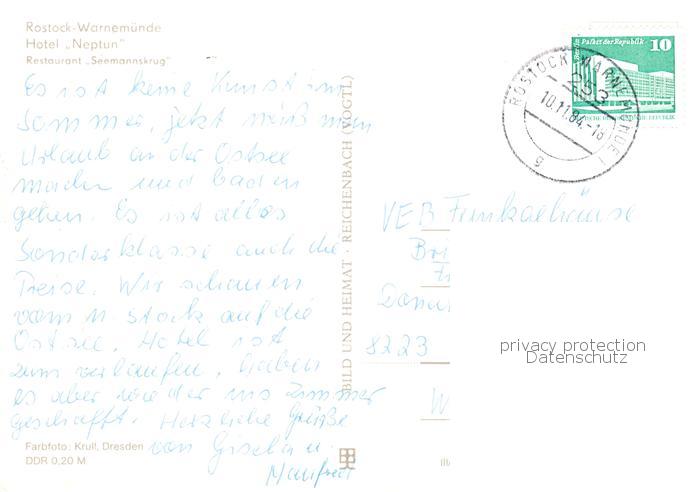 Rostock-Warnemünde
Hotel „Neptun"
Restaurant „Seemannskrug"
Es ist keine Kunst im
Sommer, jetzt muß man
Urlaub an der Ostsee
machen und baden
gehen. Es ist alles
Sonderklasse auch die
Preise. Wir schauen
vom 11. Stock auf die
Ostsee. Hotel ist
zum verlaufen, haben
es aber wieder ins Zimmer
geschafft. Herzliche Grüße
von Gisela u.
Manfred
Farbfoto: Krull, Dresden
DDR 0,20 M
BILD UND HEIMAT · REICHENBACH (VOGTL)
Palast der Republik
10
DEUTSCHE DEMOKRATISCHE REPUBLIK
ROSTOCK-WARNEMÜNDE 1
253
10.11.84.-18
g
VEB Funkgehäuse
8223
W
privacy protection
Datenschutz